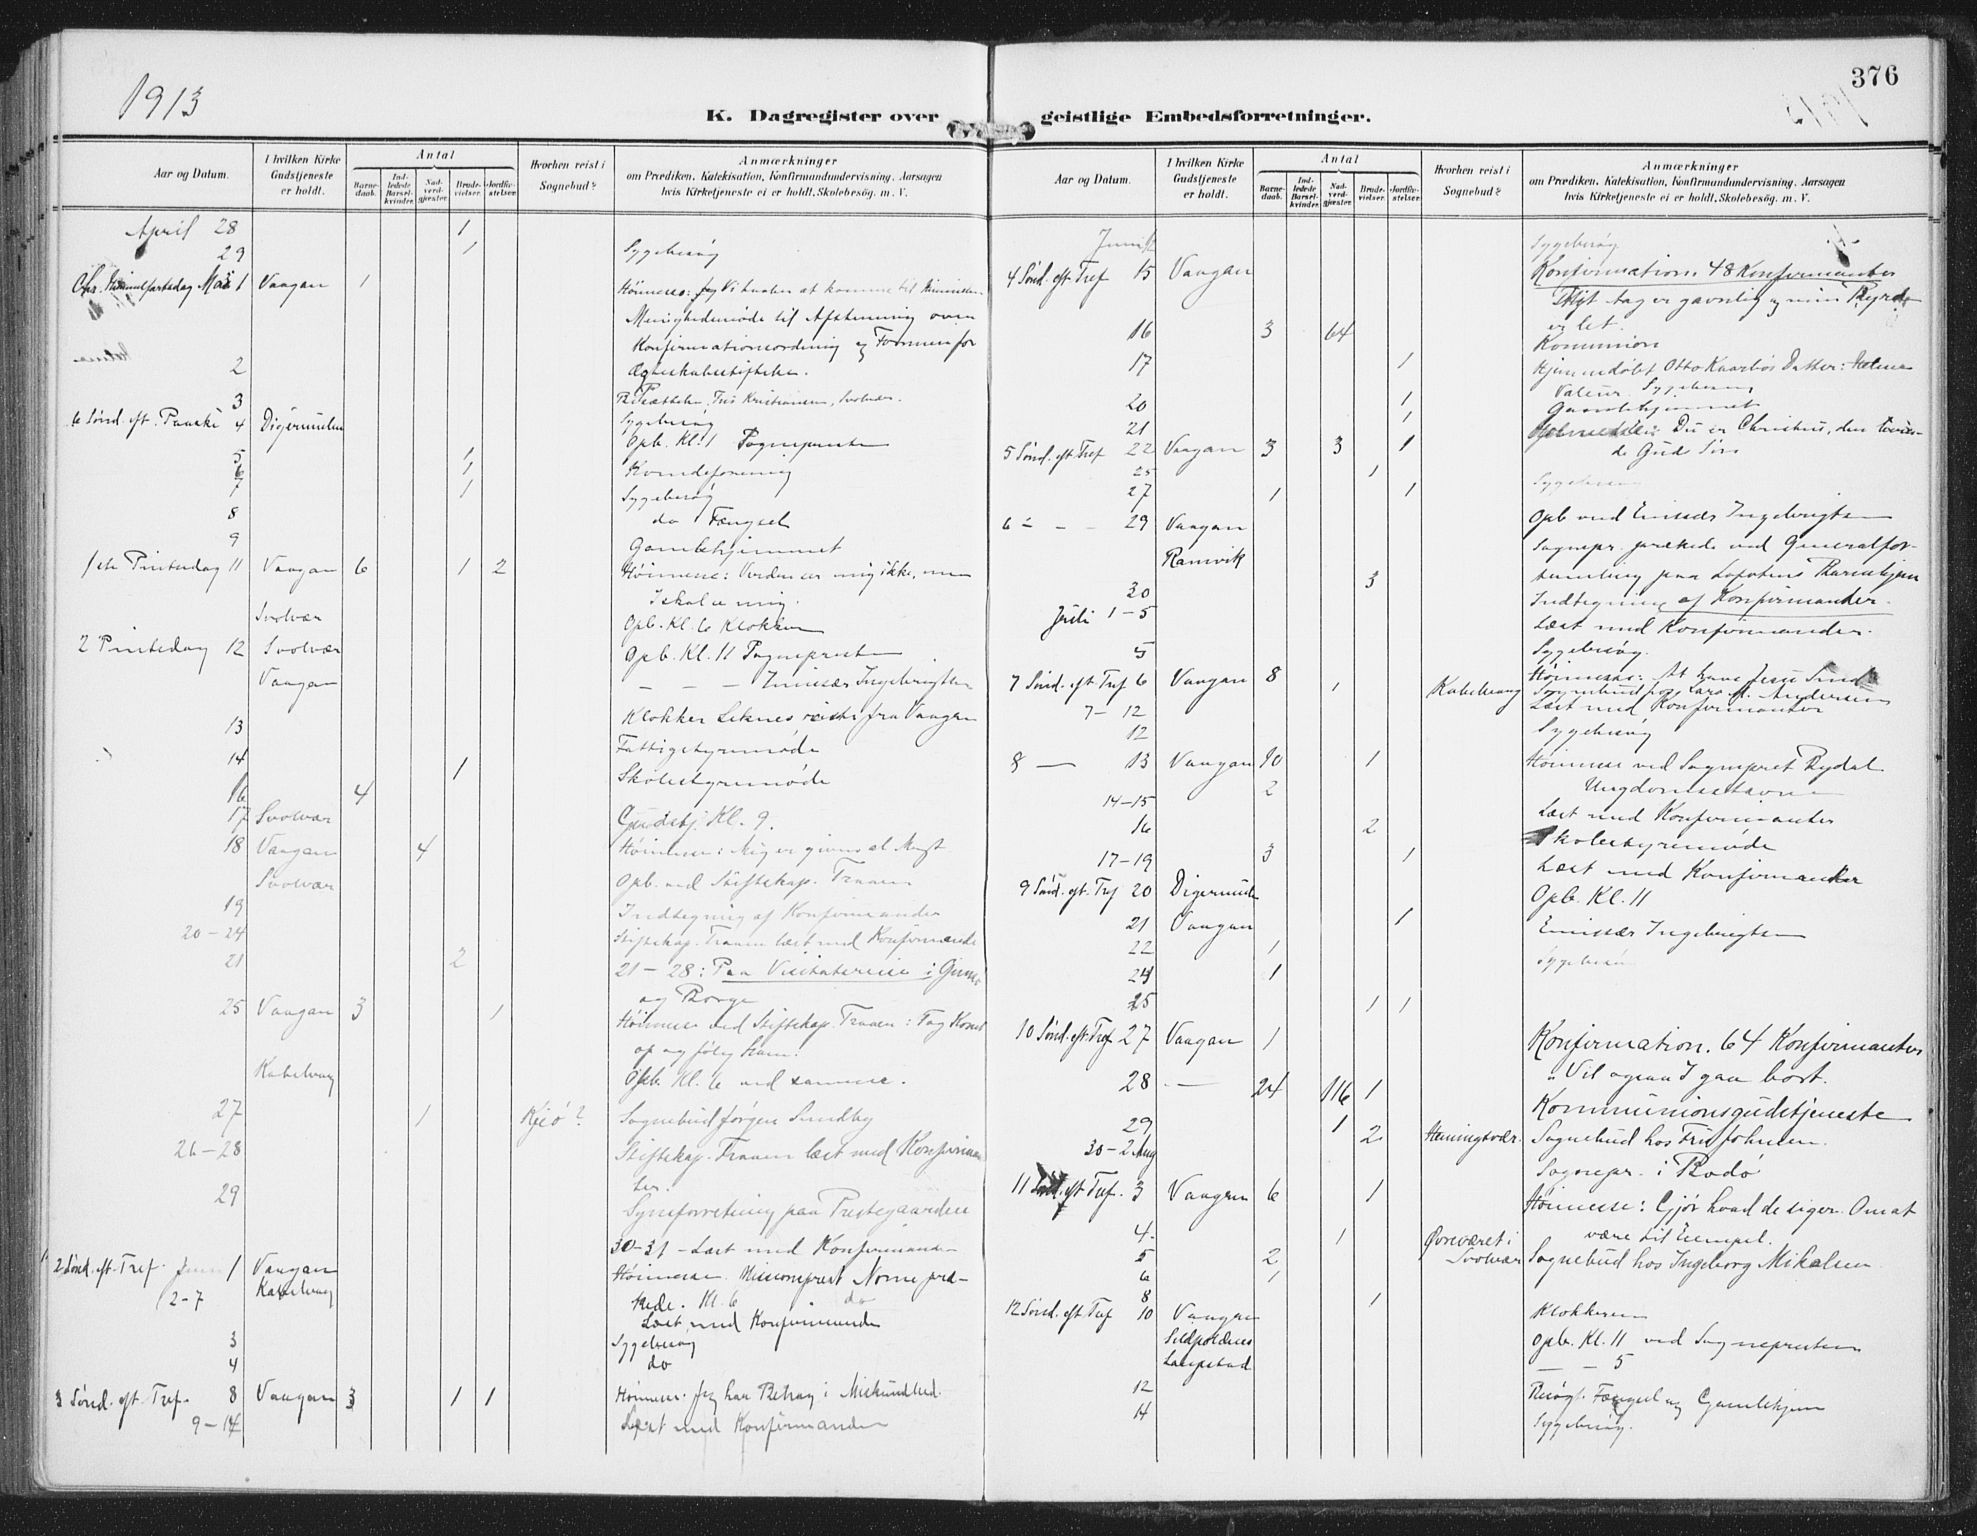 1913
376
K. Dagregister over geistlige Embedsforretninger.
Aar og Datum.
I hvilken Kirke Gudstjeneste er holdt.
Antal
Barnedaab.
Indledede Barselkvinder.
Nadverdgjæster.
Brudevielser.
Jordfæstelser.
Hvorhen reist i Sognebud?
Anmærkninger
om Prædiken, Katekisation, Konfirmandundervisning, Aarsagen
hvis Kirketjeneste ei er holdt, Skolebesøg. m. V.
April 28 1
29 1 Sygebesøg
Chr. Himmelfartsdag Mai 1 Vaagan 1 Høimesse: Vi
Menighedsmøde til Afstemning over
Konfirmationsordning og Formen for
2 Ægteskabsstiftelse.
3 Kristiansen, Svolvær.
Sygebesøg
6 Sønd. eft. Paaske 4 Digermulen Opb. Kl. 11 Sognepresten
5 1 Kvindeforening
6 1
7 1 Sygebesøg
8 do Fængsel
9 Gamlehjemmet
1ste Pintsedag 11 Vaagan 6 1 2 Høimesse: Verden ser mig ikke, men
I skal se mig.
Svolvær Opb. Kl. 6 Klokker
2 Pintsedag 12 Svolvær Opb. Kl. 11 Sognepresten
Vaagan — — — Emissær Ingebrigtsen
13 Klokker Leknes reiste fra Vaagan
14 Fattigstyremøde
1 Skolestyremøde
16 4
17 Svolvær Gudstj. Kl. 9.
18 Vaagan 4 Høimesse: Mig er given al Magt
Svolvær Opb. ved Stiftskap. Traaen
19 Indtegning af Konfirmander
20-24 Stiftskap. Traaen læst med Konfirmander
21 2 21-28: Paa Visitatsreise i Gimsø
og Borge
25 Vaagan 3 1 Høimesse ved Stiftskap. Traaen: Tag Korset
op og følg ham.
Kabelvaag Opb. Kl. 6 ved samme.
27 1 Kjeø? Sognebud Jørgen Sundby
26-28 Stiftskap. Traaen læst med Konfirman-
ter.
29 Synsforretning paa Prestegaarden
30-31 - Læst med Konfirmander
2 Sønd. eft. Tref. Juni 1 Vaagan Høimesse. Missionsprest Nome præ-
Kabelvaag kede. Kl. 6 do
2-7 Læst med Konfirmander
3 Sygebesøg
4 do
3 Sønd. eft. Tref. 8 Vaagan 3 1 1 Høimesse: Jeg har Behag i Miskundhed.
9-14 Læst med Konfirmander
Aar og Datum.
I hvilken Kirke Gudstjeneste er holdt.
Antal
Barnedaab.
Indledede Barselkvinder.
Nadverdgjæster.
Brudevielser.
Jordfæstelser.
Hvorhen reist i Sognebud?
Anmærkninger
om Prædiken, Katekisation, Konfirmandundervisning, Aarsagen
hvis Kirketjeneste ei er holdt, Skolebesøg. m. V.
Juni Sygebesøg
4 Sønd. eft Tref 15 Vaagan Konfirmation. 48 Konfirmanter
Mit Aag er gavnlig og min Byrde
er let.
16 3 64 Kommunion
17 1 Hjemmedøbt Otto Kaarbøs Datter:
Sygebesøg
20 1 Gamlehjemmet
21 1
5 Sønd. eft. Tref 22 Vaagan 3 3 1 Du er Christus, den leven-
de Guds Søn
25 1 Sygebesøg
27 1 1
6 - - - 29 Vaagan Opb ved Emissær Ingebrigtsen
Ramvik Sognepr. prækede ved Generalfor-
samling paa Lofotens Barnehjem
30 3 Indtegning af Konfirmander.
Juli 1-5 Læst med Konfirmander.
5 Sygebesøg.
7 Sønd. eft Tref 6 Vaagan 8 1 Kabelvaag Høimesse: At have Jesu Sind
Sognebud hos Lars A. Andersen
7-12 Læst med Konfirmanter
12 Sygebesøg
8 — 13 Vaagan 10 1 Høimesse ved Sognepret Rydal
2 Ungdomsstævne
14-15 Læst med Konfirmanter
16 2 Skolestyremøde
17-19 3 1 Læst med Konfirmander
9 Sønd. eft. Tref 20 Digermulen Opb. Kl. 11
21 Vaagan 1 Emissær Ingebrigtsen
22 1 Sygebesøg
24 1
25 1 1
10 Sønd. eft. Tref 27 Vaagan 1 Konfirmation. 64 Konfirmanter
"Vil ogsaa I gaa bort.
28 — 24 116 1 Kommunionsgudstjeneste
29 1 2 Henningsvær. Sognebud hos Fru Johnsen.
30-2 Aug Sognepr. i Bodø
11 Sønd. eft Tref. 3 Vaagan 6 1 Høimesse: Gjør hvad de siger. Om at
være til Exempel.
4. 1 Øreværet i
Svolvær Sognebud hos Ingeborg Mikalsen
5 2
6 1
8 1
12 Sønd. eft Tref 10 Vaagan Klokkeren
Sildpoldnes Opb. Kl. 11 ved Sognepresten
Laupstad — — 5
12 Besøgt Fængsel og Gamlehjem
14 Sygebesøg.